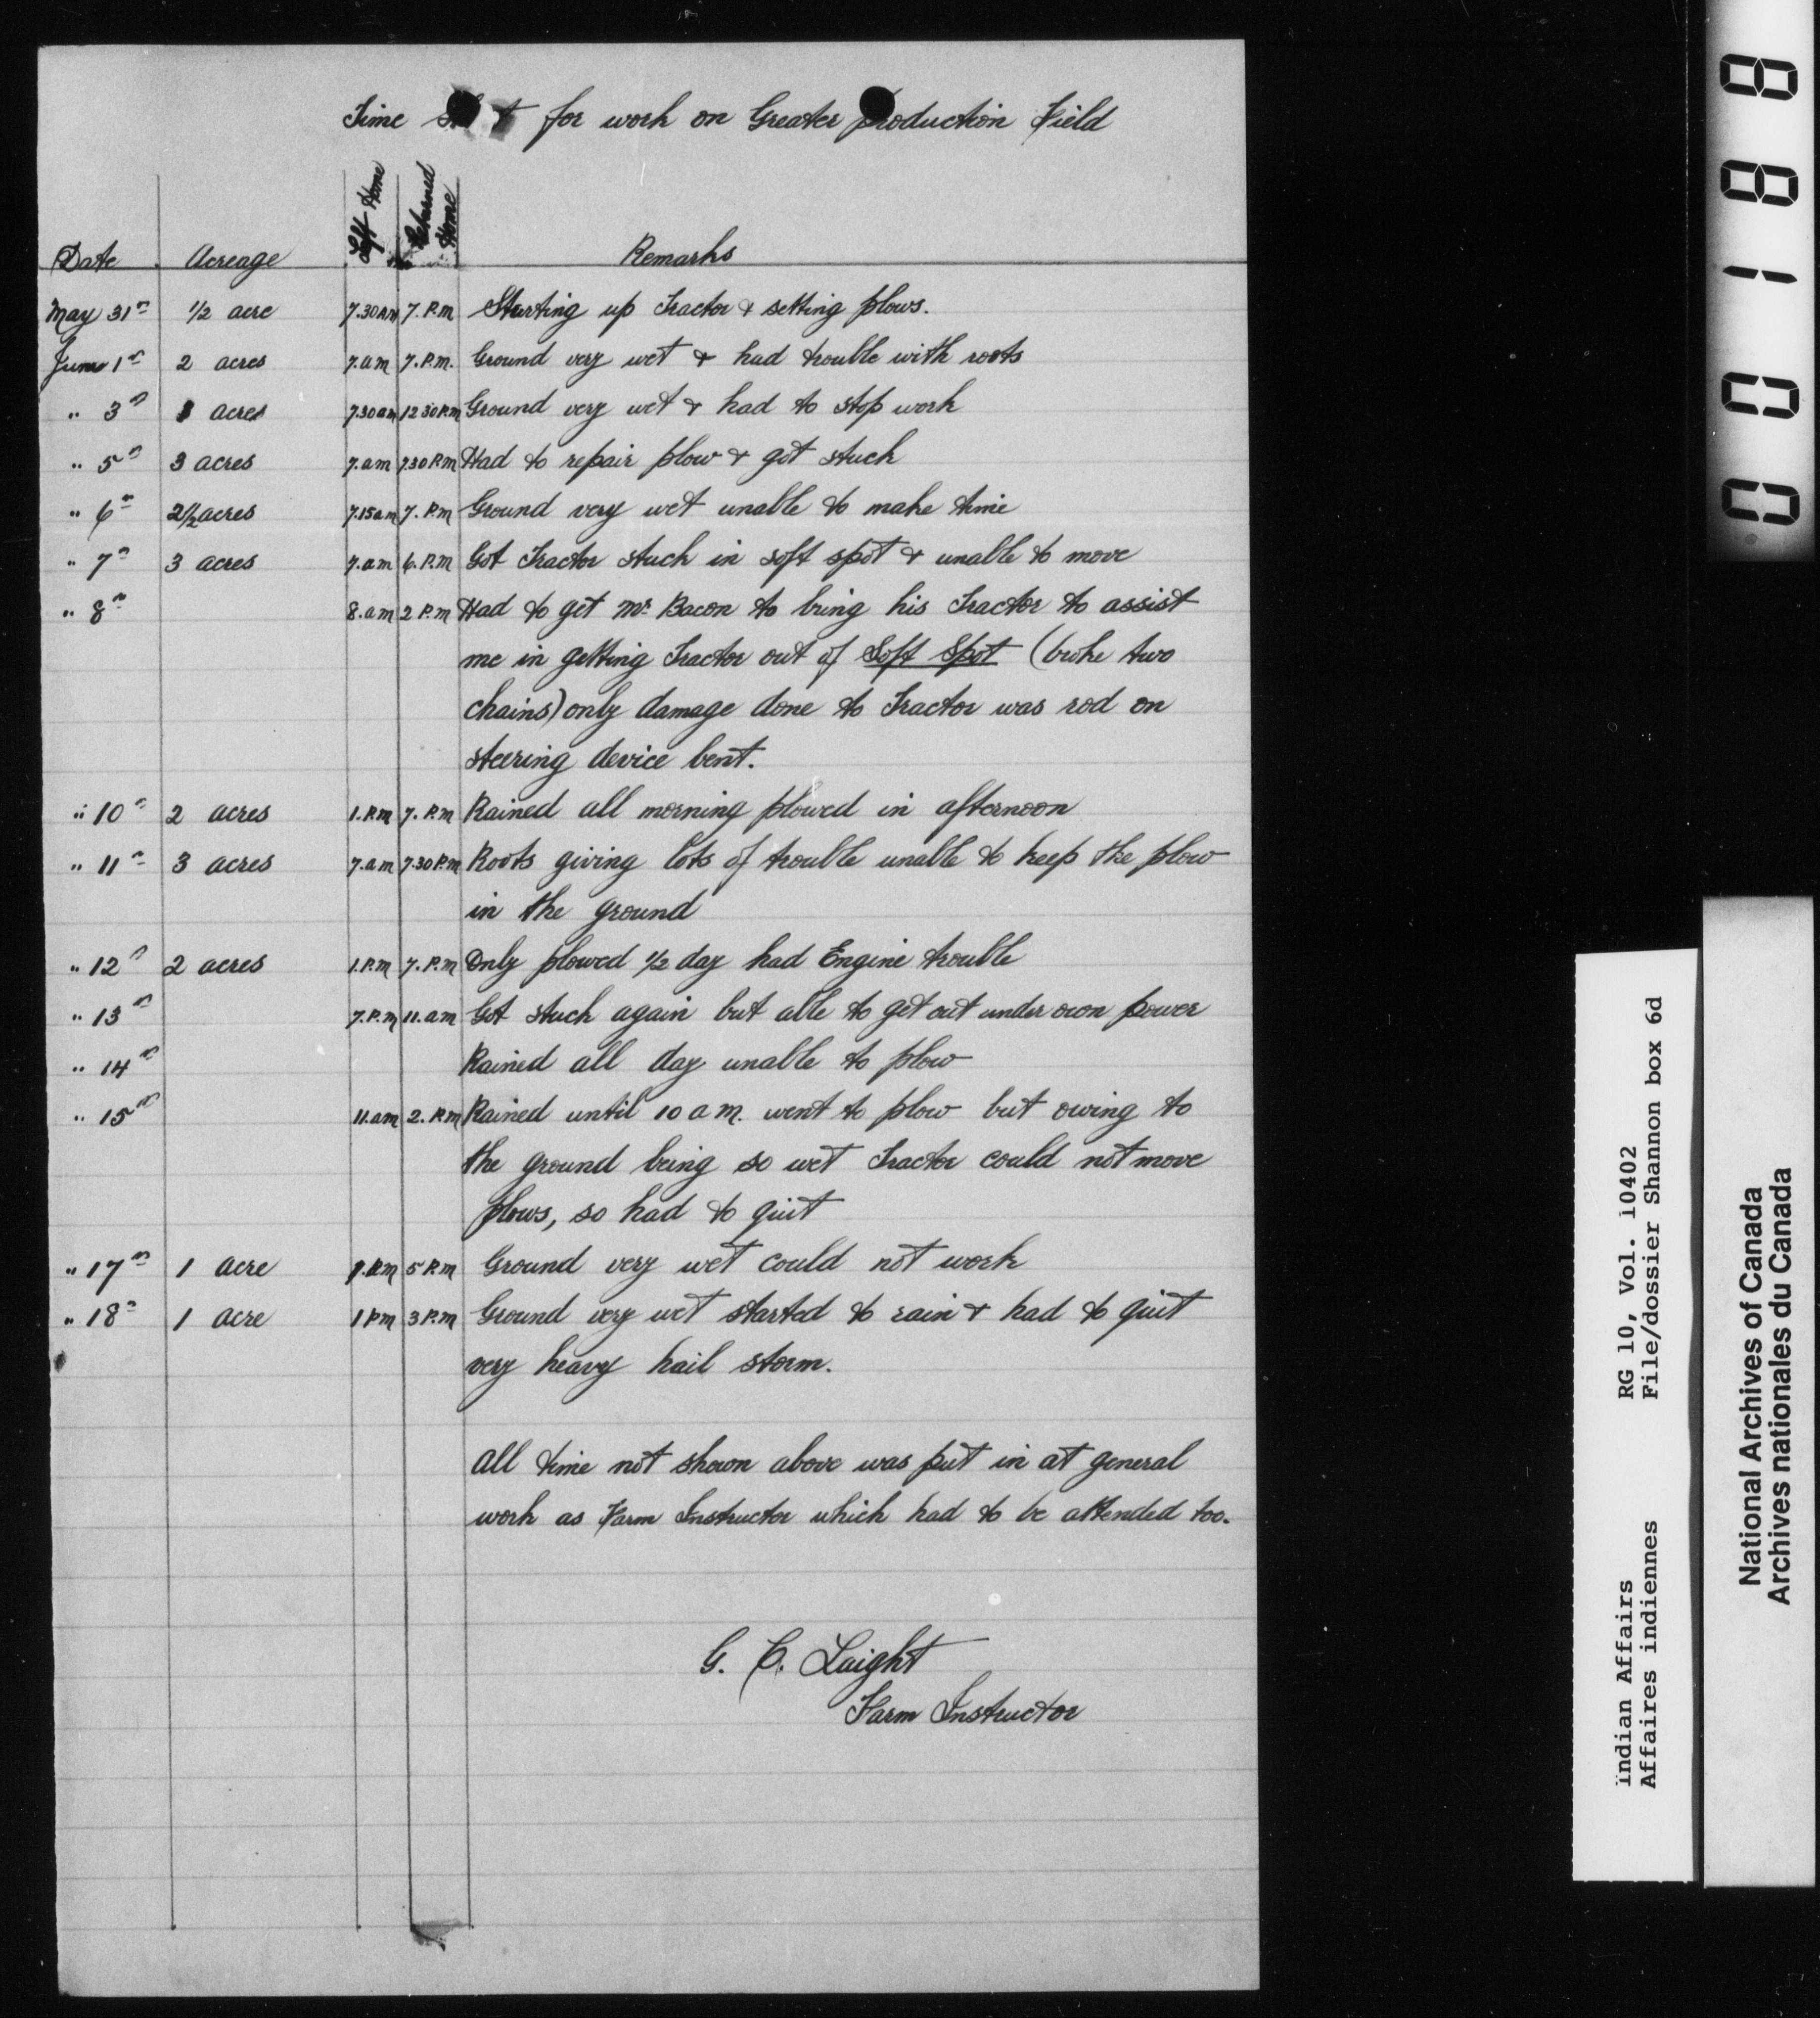 Time for work on Greater Production Field
Date Acreage Left Home Returned Home Remarks
May 31st 1/2 acre 7.30 AM 7. P.M Starting up Tractor & setting plows.
June 1st 2 acres 7. am 7. P.M. Ground very wet & had trouble with roots
" 3rd acres 7.30 am 12 30 P.M Ground very wet & had to stop work
" 5th 3 acres 7. am 7.30 P.M Had to repair plow & got stuck
" 6th 2 1/2 acres 7.15 am 7. P.M Ground very wet unable to make time
" 7th 3 acres 7. am 6. P.M Got Tractor stuck in soft spot & unable to move
" 8th 8. am 2 P.M Had to get Mr. Bacon to bring his Tractor to assist
me in getting Tractor out of Soft Spot (broke two
chains) only damage done to Tractor was rod on
steering device bent.
" 10th 2 acres 1. P.M 7. P.M Rained all morning plowed in afternoon
" 11th 3 acres 7. am 7.30 P.M Roots giving lots of trouble unable to keep the plow
in the ground
" 12th 2 acres 1. P.M 7. P.M Only plowed 1/2 day had Engine trouble
" 13th 7. P.M 11. am Got stuck again but able to get out under own power
" 14th Rained all day unable to plow
" 15th 11. am 2. P.M Rained until 10 a m. went to plow but owing to
the ground being so wet Tractor could not move
plows, so had to quit
" 17th 1 acre 5 P.M Ground very wet could not work
" 18th 1 acre 1 PM 3 P.M Ground very wet started to rain & had to quit
very heavy hail storm.
All time not shown above was put in at general
work as Farm Instructor which had to be attended too.
G. C. Laight
Farm Instructor
00188
Indian Affairs RG 10, Vol. 10402
Affaires indiennes File/dossier Shannon box 6d
National Archives of Canada
Archives nationales du Canada